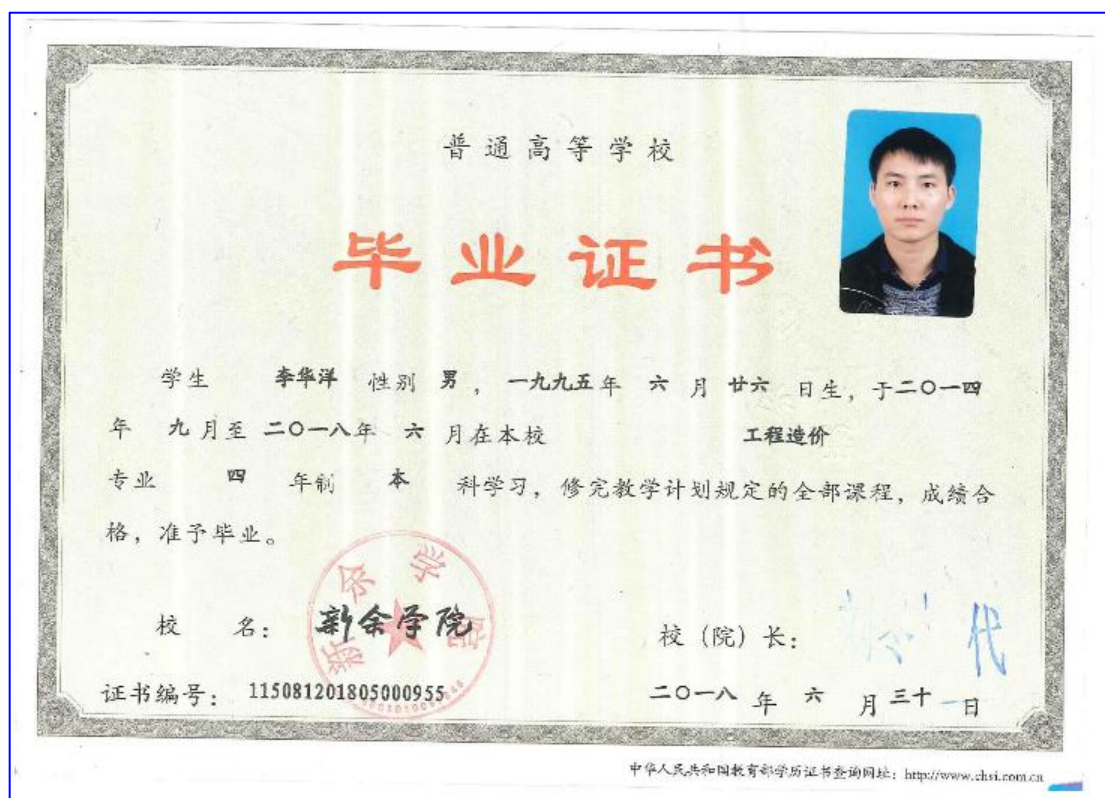 普通高等学校
毕业证书
学生 李华洋 性别 男，一九九五年 六 月 廿六 日生，于二〇一四
年 九 月至 二〇一八年 六 月在本校 工程造价
专业 四 年制 本 科学习，修完教学计划规定的全部课程，成绩合
格，准予毕业。
新余学院
校 名： 新余学院
校（院）长： 代
证书编号： 115081201805000955
二〇一八 年 六 月 三十 日
中华人民共和国教育部学历证书查询网址：http://www.chsi.com.cn